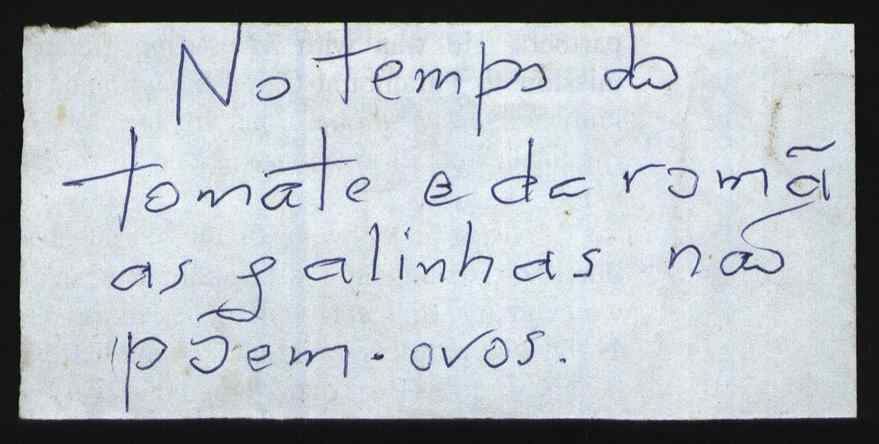 No tempo do
tomate e da romã
as galinhas não
põem. ovos.